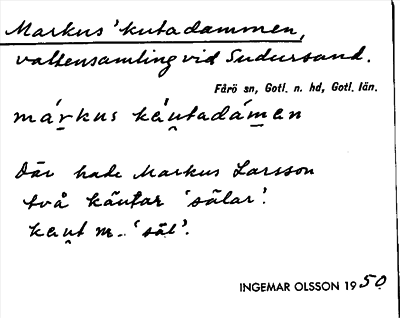 Markus' kutadammen,
vattensamling vid Sudersand.
Fårö sn, Gotl. n. hd, Gotl. län.
márkus káutadámen
Där hade Markus Larsson
två käutar 'sälar'.
kaut m. 'säl'.
INGEMAR OLSSON 1950